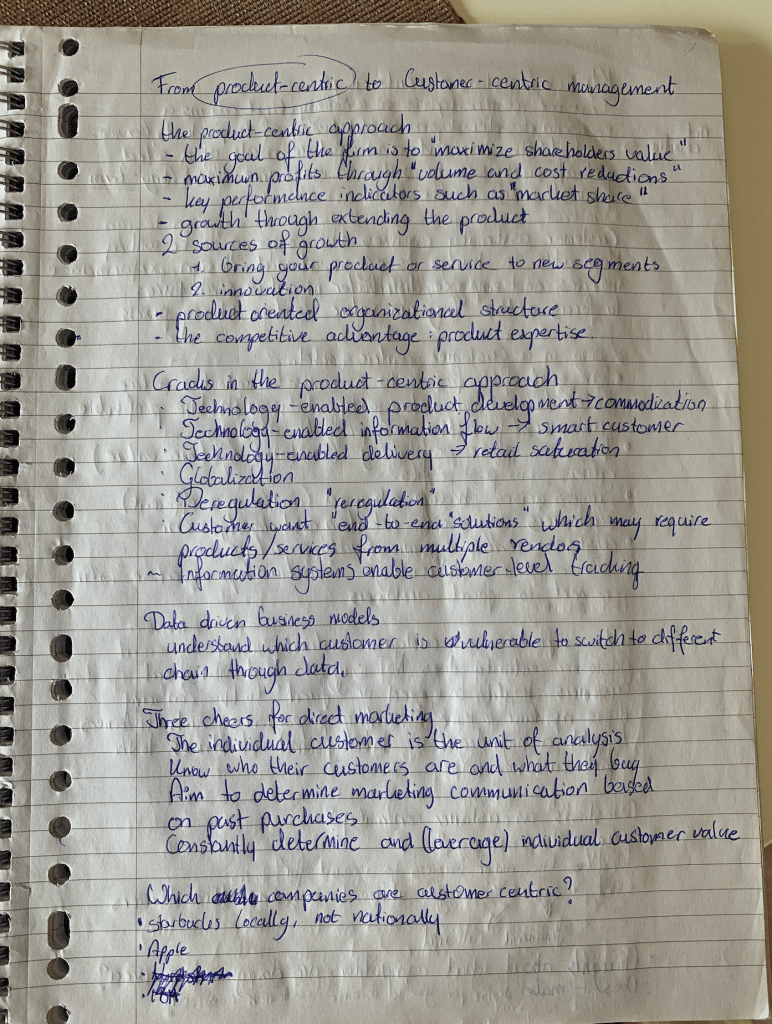 From product-centric to Customer-centric management
the product-centric approach
- the goal of the firm is to "maximize shareholders value"
- maximum profits through "volume and cost reductions"
- key performance indicators such as "market share"
- growth through extending the product
2 sources of growth
1. bring your product or service to new segments
2. innovation
- product oriented organizational structure
- the competitive advantage : product expertise.
Cracks in the product-centric approach
· Technology-enabled product development → commodization
Technology-enabled information flow → smart customer
· Technology-enabled delivery → retail saturation
· Globalization
· Deregulation "reregulation"
· Customer want "end-to-end "solutions" which may require
products/services from multiple vendors
~ Information systems enable customer-level tracking
Data driven business models
understand which customer is vulnerable to switch to different
chain through data.
Three cheers for direct marketing
The individual customer is the unit of analysis
Know who their customers are and what they buy
Aim to determine marketing communication based
on past purchases
Constantly determine and (leverage) individual customer value
Which companies are customer centric?
· Starbucks locally, not nationally
· Apple